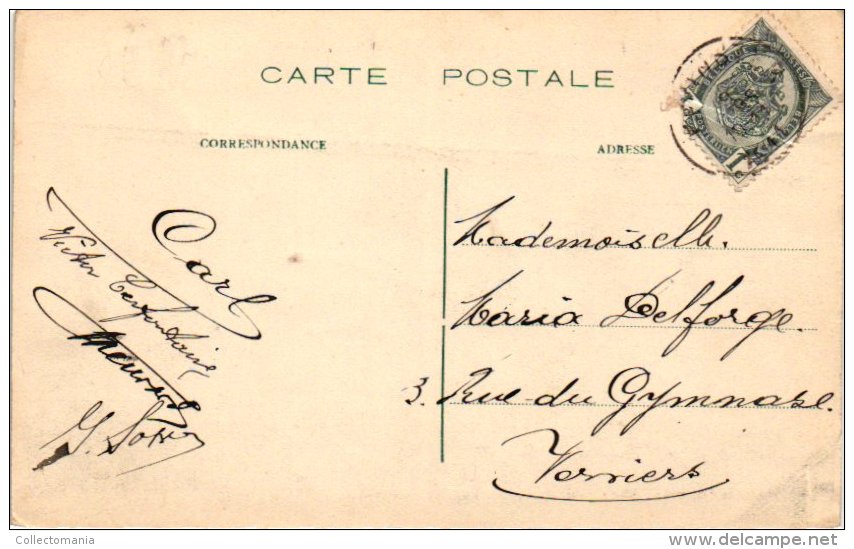 CARTE POSTALE
CORRESPONDANCE
ADRESSE
Carl
Victor
Mademoiselle.
Maria Delforge.
3. Rue du Gymnase.
Verviers
© Collectomania
delcampe.net